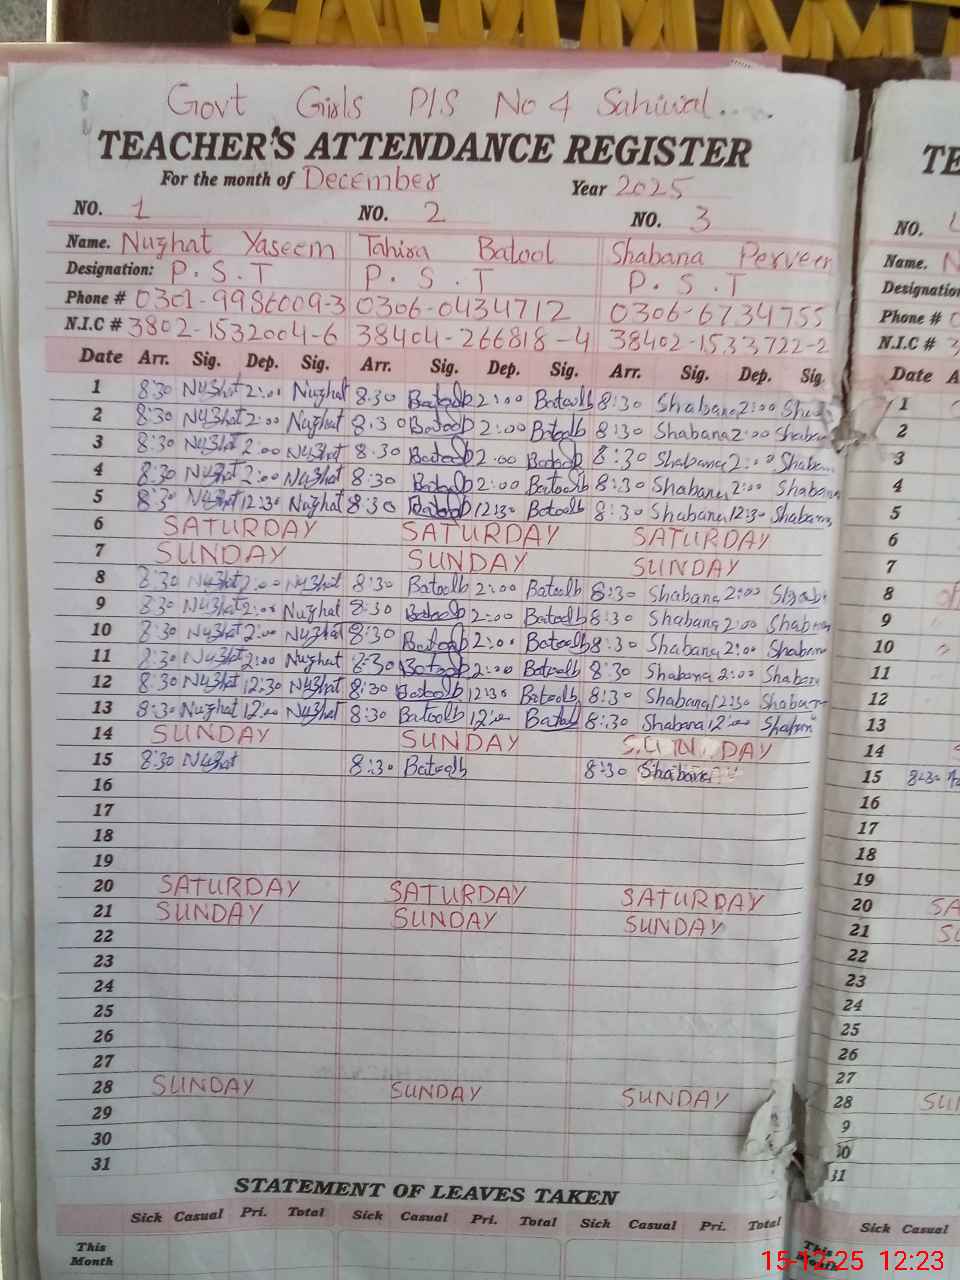 Govt Girls P/S No 4 Sahiwal....
TEACHER'S ATTENDANCE REGISTER
For the month of December Year 2025
NO. 1 NO. 2 NO. 3
Name. Nuzhat Yaseem Tahira Batool Shabana Perveen
Designation: P.S.T P.S.T P.S.T
Phone # 0301-9986009-3 0306-0434712 0306-6734755
N.I.C # 3802-1532004-6 38404-266818-4 38402-1533722-2
Date Arr. Sig. Dep. Sig. Arr. Sig. Dep. Sig. Arr. Sig. Dep. Sig
1 8:30 Nuzhat 2:00 Nuzhat 8:30 Batoolb 2:00 Batoolb 8:30 Shabana 2:00
2 8:30 Nuzhat 2:00 Nuzhat 8:30 Batoolb 2:00 Batoolb 8:30 Shabana 2:00 Shabana
3 8:30 Nuzhat 2:00 Nuzhat 8:30 Batoolb 2:00 Batoolb 8:30 Shabana 2:00 Shabana
4 8:30 Nuzhat 2:00 Nuzhat 8:30 Batoolb 2:00 Batoolb 8:30 Shabana 2:00 Shabana
5 8:30 Nuzhat 12:30 Nuzhat 8:30 Batoolb 12:30 Batoolb 8:30 Shabana 12:30 Shabana
6 SATURDAY SATURDAY SATURDAY
7 SUNDAY SUNDAY SUNDAY
8 8:30 Nuzhat 2:00 Nuzhat 8:30 Batoolb 2:00 Batoolb 8:30 Shabana 2:00
9 8:30 Nuzhat 2:00 Nuzhat 8:30 Batoolb 2:00 Batoolb 8:30 Shabana 2:00 Shabana
10 8:30 Nuzhat 2:00 Nuzhat 8:30 Batoolb 2:00 Batoolb 8:30 Shabana 2:00 Shabana
11 8:30 Nuzhat 2:00 Nuzhat 8:30 Batoolb 2:00 Batoolb 8:30 Shabana 2:00 Shabana
12 8:30 Nuzhat 12:30 Nuzhat 8:30 Batoolb 12:30 Batoolb 8:30 Shabana 12:30 Shabana
13 8:30 Nuzhat 12:00 Nuzhat 8:30 Batoolb 12:00 Batool 8:30 Shabana 12:00 Shabana
14 SUNDAY SUNDAY SUNDAY
15 8:30 Nuzhat 8:30 Batoolb 8:30 Shabana
16
17
18
19
20 SATURDAY SATURDAY SATURDAY
21 SUNDAY SUNDAY SUNDAY
22
23
24
25
26
27
28 SUNDAY SUNDAY SUNDAY
29
30
31
STATEMENT OF LEAVES TAKEN
Sick Casual Pri. Total Sick Casual Pri. Total Sick Casual Pri. Total
This Month
TE
NO.
Name. N
Designation
Phone # 0
N.I.C # 3
Date A
1
2
3
4
5
6
7
8
9
10
11
12
13
14
15 8:30
16
17
18
19
20 SA
21 SU
22
23
24
25
26
27
28 SUN
9
30
31
Sick Casual
This
15-12-25 12:23